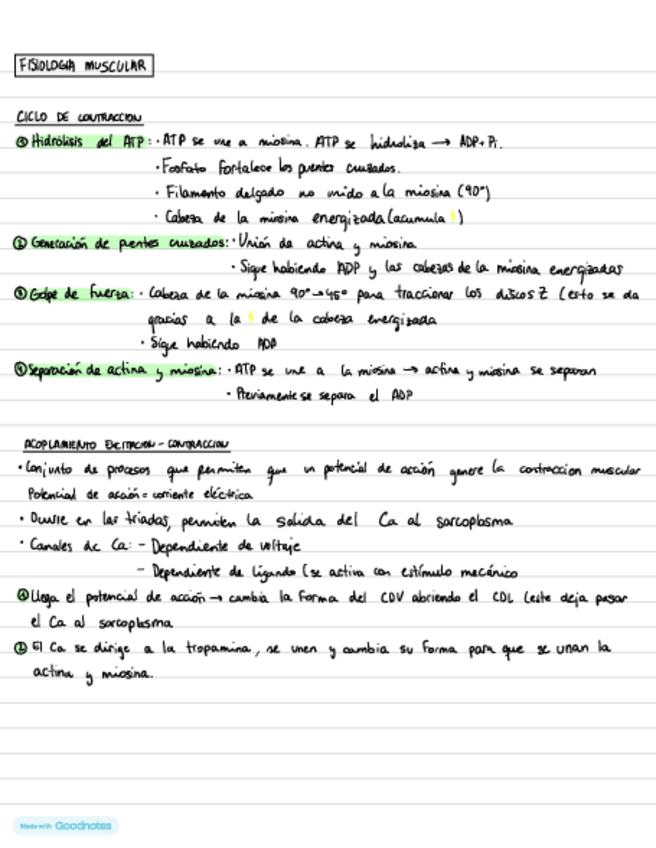 FISIOLOGIA MUSCULAR
CICLO DE CONTRACCION
① Hidrólisis del ATP: · ATP se une a miosina. ATP se hidroliza → ADP+Pi.
· Fosfato fortalece los puentes cruzados.
· Filamento delgado no unido a la miosina (90°)
· Cabeza de la miosina energizada (acumula ⚡)
② Generación de puentes cruzados: · Unión de actina y miosina
· Sigue habiendo ADP y las cabezas de la miosina energizadas
③ Golpe de fuerza: · Cabeza de la miosina 90°→45° para traccionar los discos Z (esto se da
gracias a la ⚡ de la cabeza energizada
· Sigue habiendo ADP
④ Separación de actina y miosina: · ATP se une a la miosina → actina y miosina se separan
· Previamente se separa el ADP
ACOPLAMIENTO EXCITACION - CONTRACCION
· Conjunto de procesos que permiten que un potencial de acción genere la contraccion muscular
Potencial de acción = corriente eléctrica
· Ocurre en las triadas, permiten la salida del Ca al sarcoplasma
· Canales de Ca: - Dependiente de voltaje
- Dependiente de ligando (se activa con estímulo mecánico
① Llega el potencial de acción → cambia la forma del CDV abriendo el CDL (este deja pasar
el Ca al sarcoplasma
② El Ca se dirige a la tropamina, se unen y cambia su forma para que se unan la
actina y miosina.
Made with Goodnotes